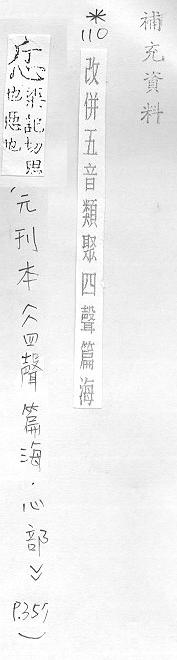 補充資料
*110
改併五音類聚四聲篇海
記切
也也
(元刊本《四聲篇海.心部》P.357)